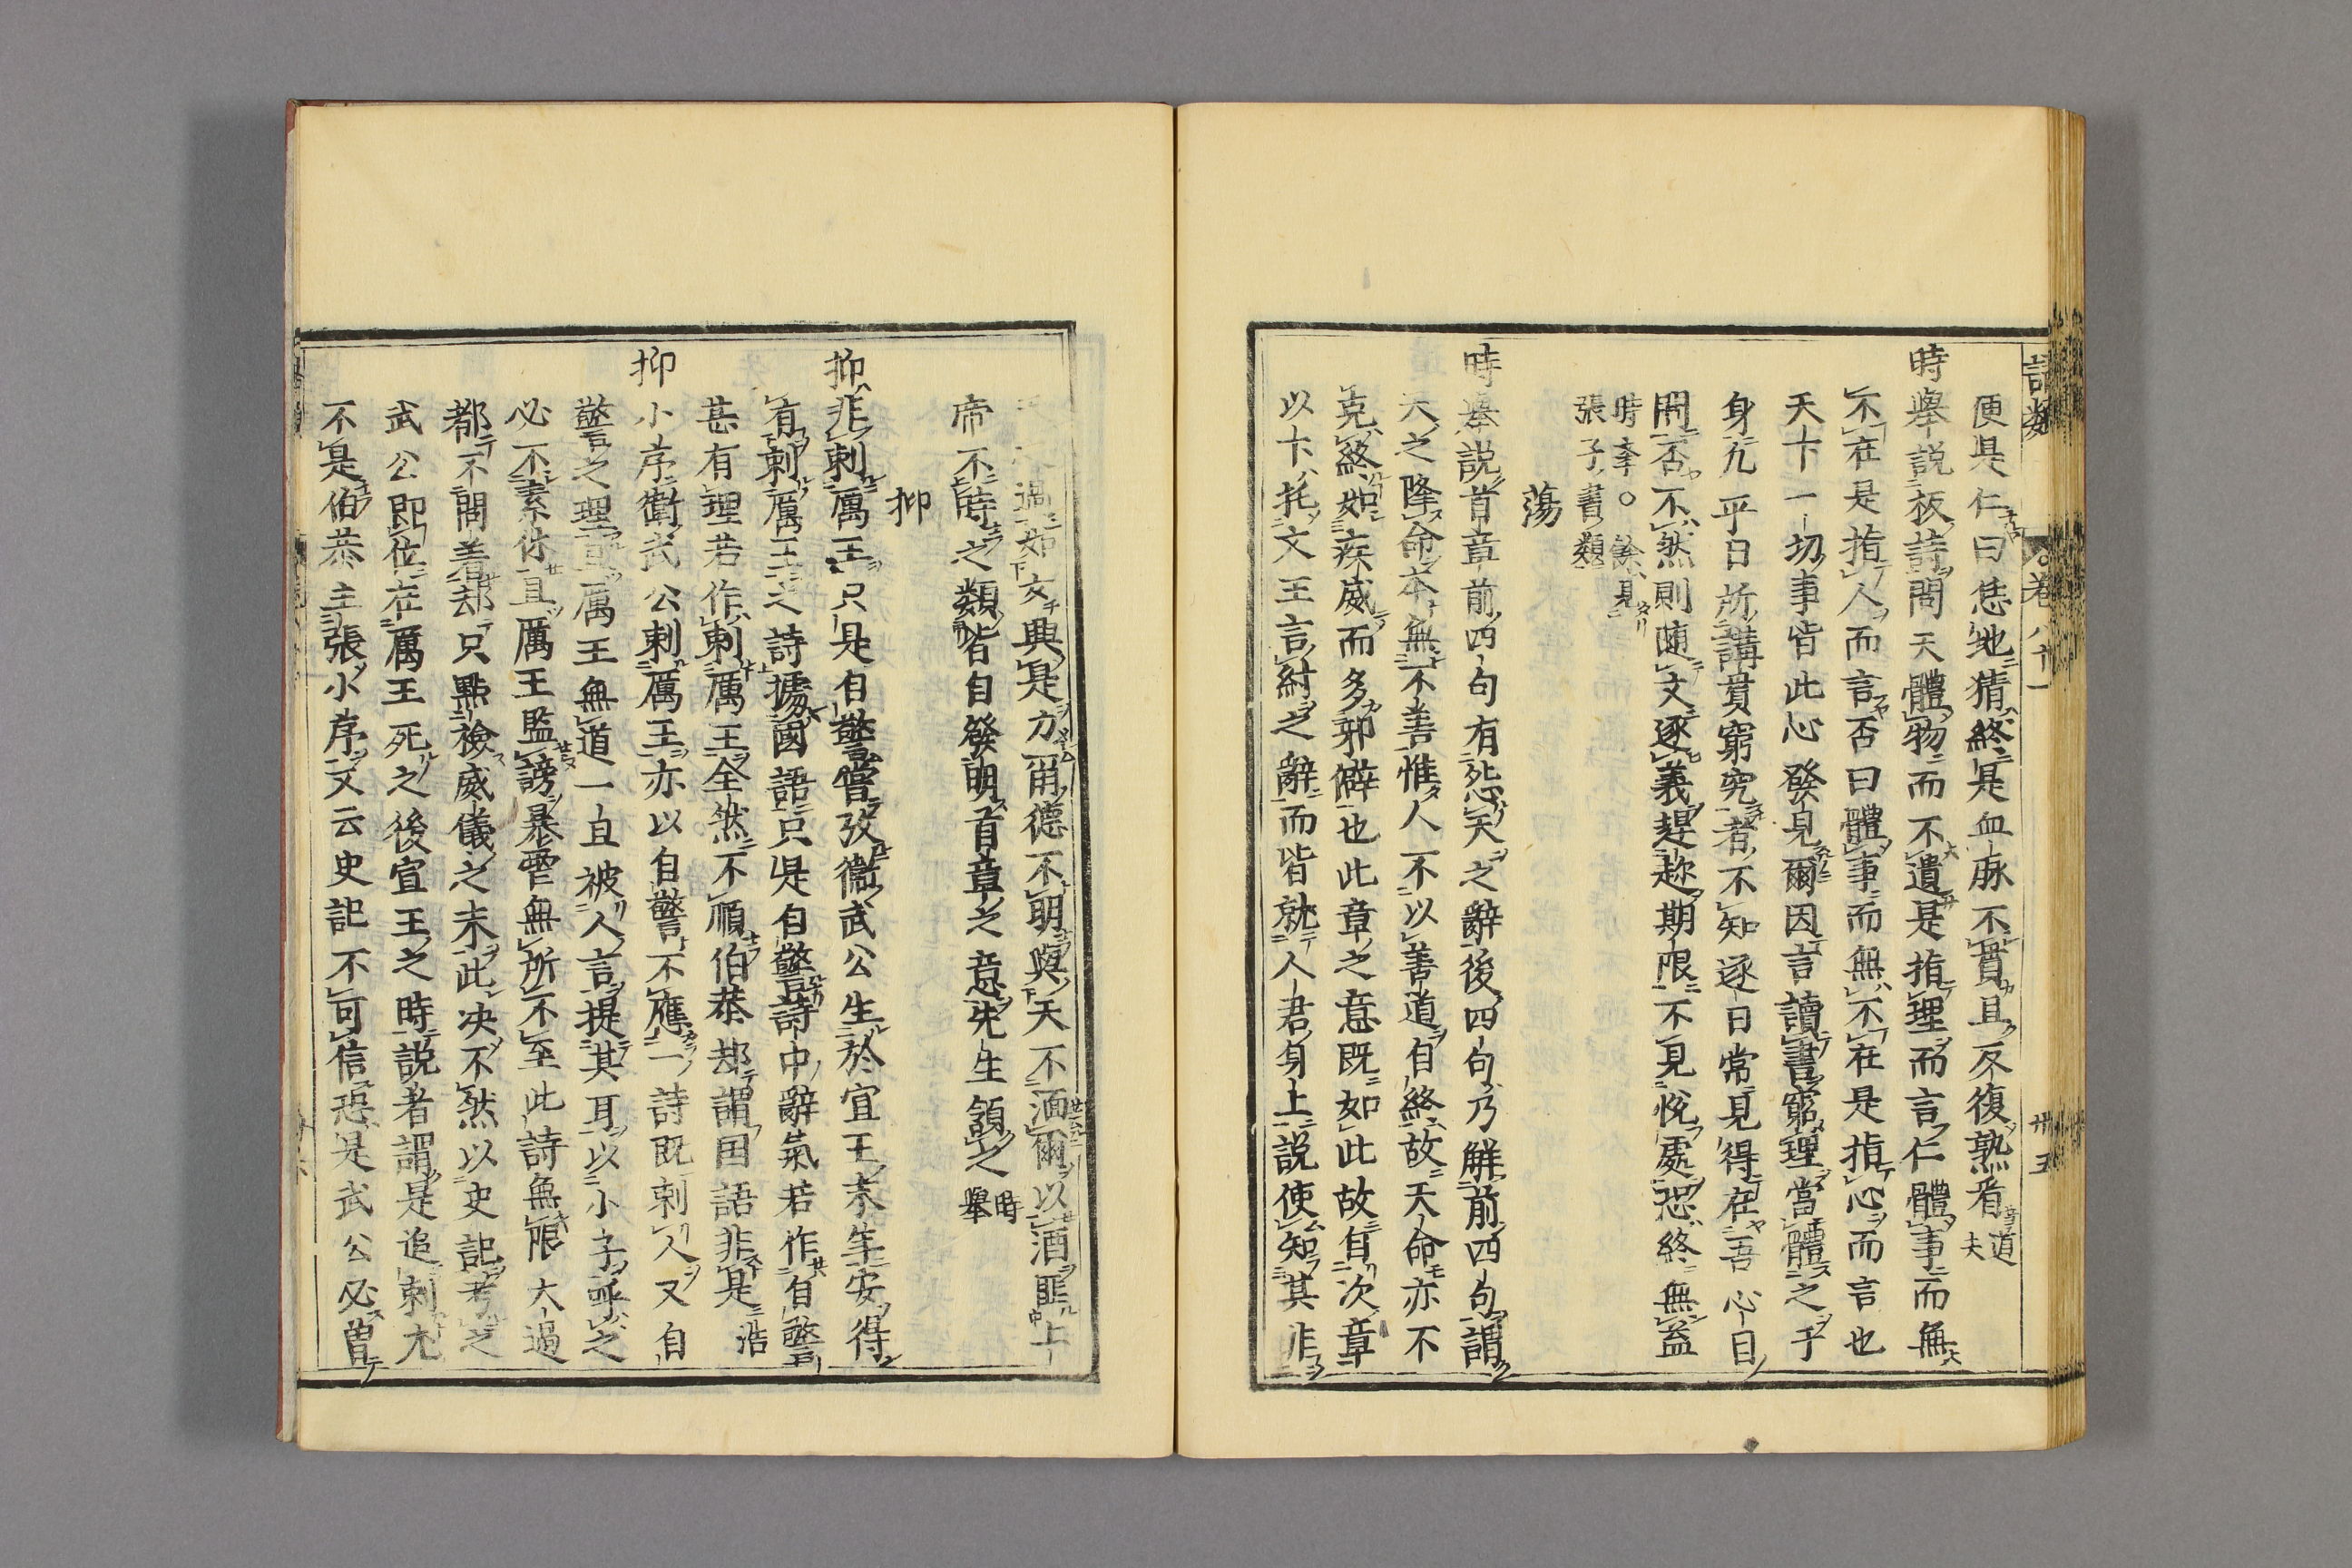 語類 卷八十一 卅五
便是仁曰恁地猜終是血脉不貫且反復熟看道夫
時擧説板詩問天體物而不遺是指理而言仁體事而無
不在是指人而言否曰體事而無不在是指心而言也
天下一切事皆此心發見爾因言讀書窮理當體之于
身凢平日所講貫窮究者不知逐日常見得在吾心目
間否不然則随文逐義趕趂期限不見悅處恐終無益
時擧○餘見
張子書類
蕩
時擧説首章前四句有怨天之辭後四句乃解前四句謂
天之降命本無不善惟人不以善道自終故天命亦不
克終如疾威而多邪僻也此章之意既如此故自次章
以下托文王言紂之辭而皆就人君身上説使知其非
過如女興是力爾德不明與天不湎爾以酒匪上
帝不時之類皆自發明首章之意先生領之時擧
抑
抑非刺厲王只是自警嘗攷衞武公生於宣王末年安得
有刺厲王之詩據國語只是自警詩中辭氣若作自警
甚有理若作刺厲王全然不順伯恭却謂国語非是浩
抑小序衞武公刺厲王亦以自警不應一詩既刺人又自
警之理且厲王無道一旦被人言提其耳以小子呼之
必不素休且厲王監謗暴虐無所不至此詩無限大過
都不問着却只點檢威儀之末此决不然以史記考之
武公即位在厲王死之後宣王之時説者謂是追刺尤
不是伯恭主張小序又云史記不可信恐是武公必曽